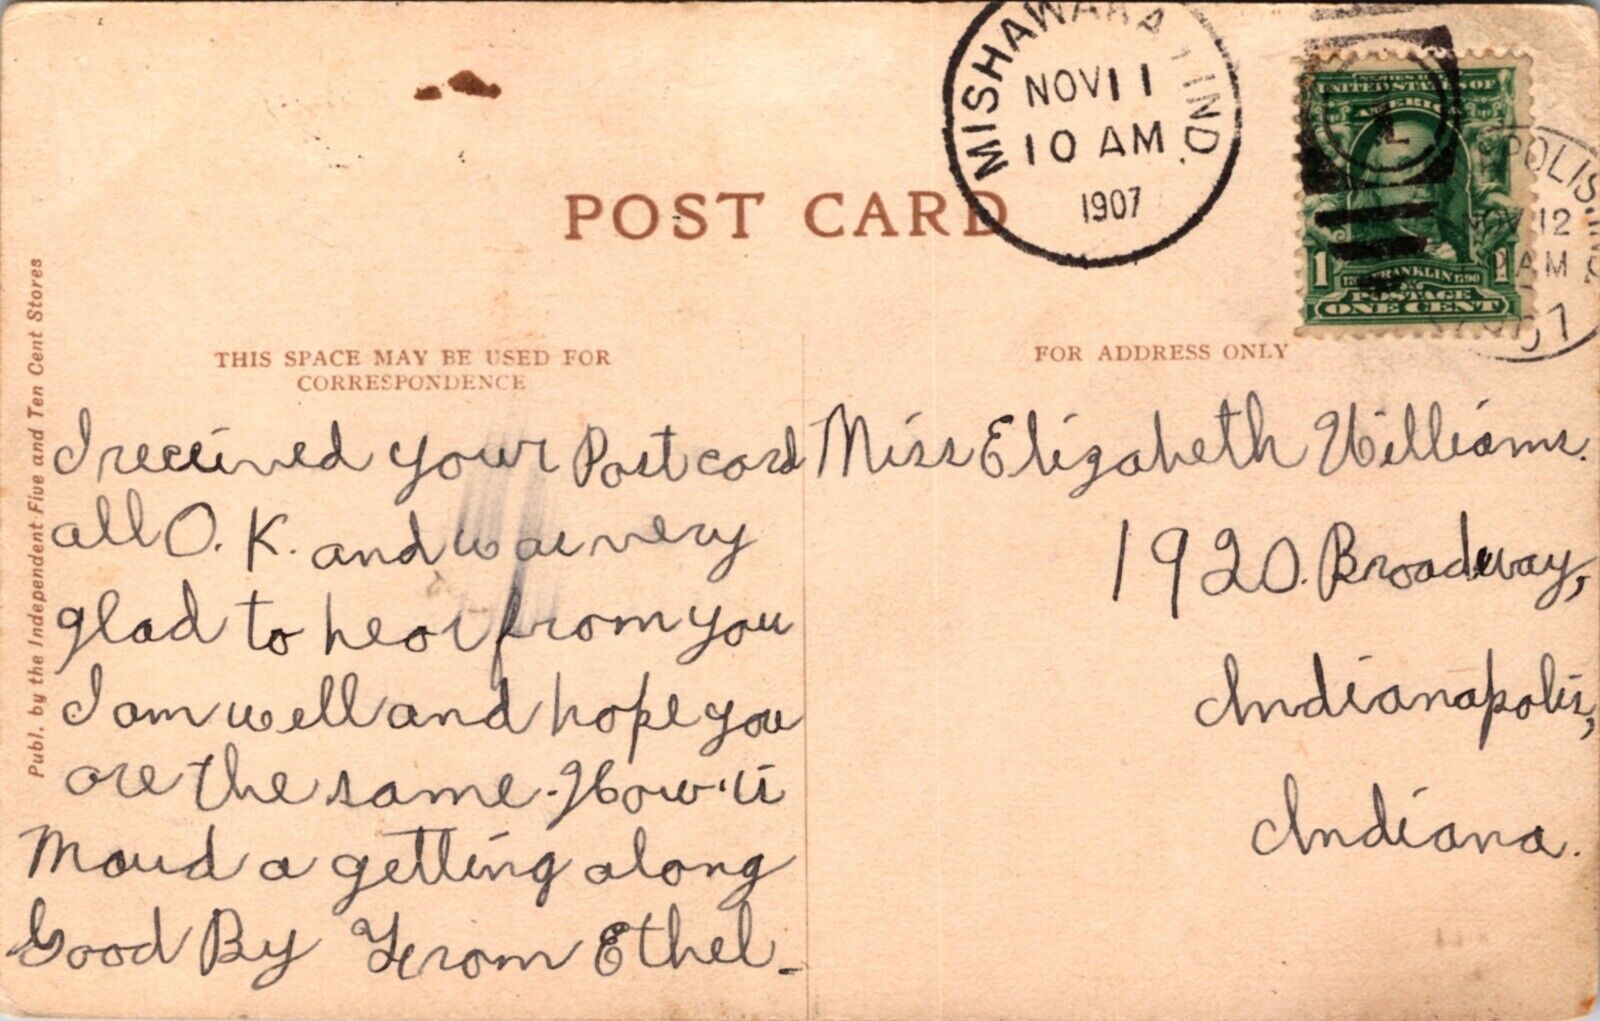 MISHAWAKA, IND.
NOV 11
10 AM
1907
UNITED STATES OF
AMERICA
1 FRANKLIN 1790
POSTAGE
ONE CENT
NOV 12
AM
POST CARD
THIS SPACE MAY BE USED FOR
CORRESPONDENCE
FOR ADDRESS ONLY
Publ. by the Independent Five and Ten Cent Stores
I received your Post card
all O.K. and was very
glad to hear from you
I am well and hope you
are the same. How is
Maud a getting along
Good By From Ethel
Miss Elizabeth Williams.
1920. Broadway,
Indianapolis,
Indiana.